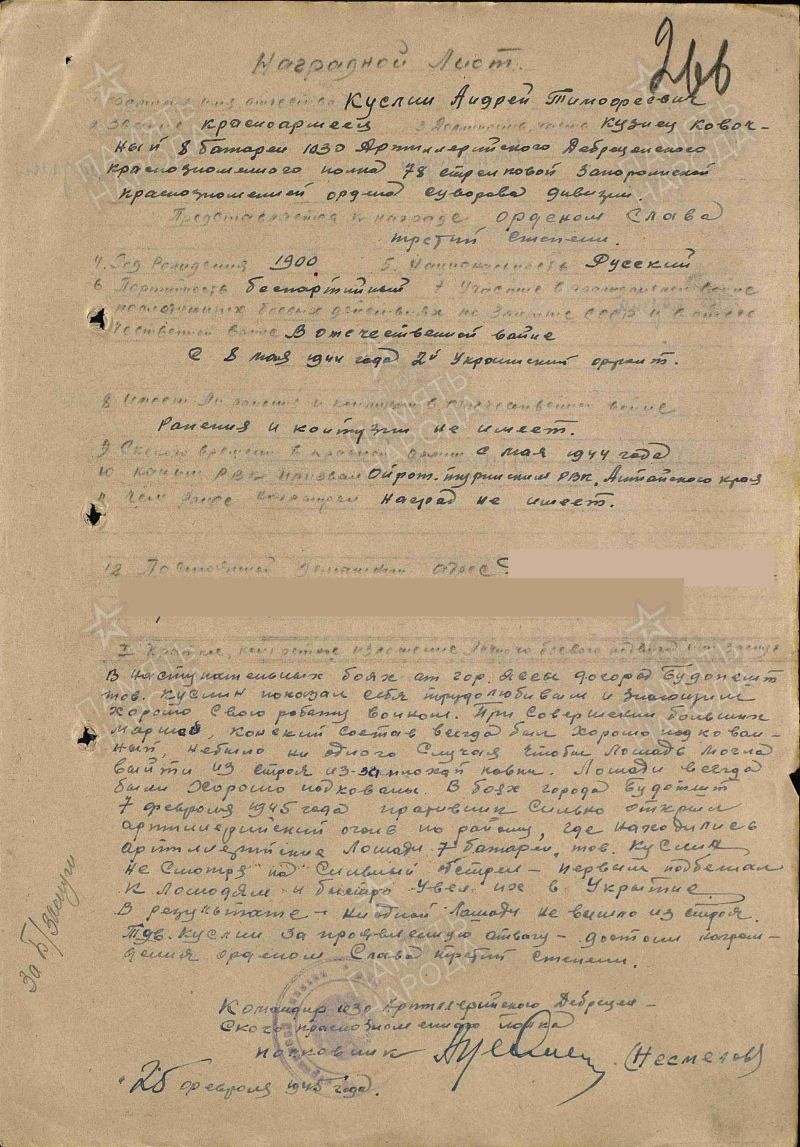 266
Наградной Лист.
1 Фамилия имя отчество Куслин Андрей Тимофеевич
2 Звание красноармеец 3 Должность, часть кузнец ковоч-
ный 8 батареи 1030 Артиллерийского Дебреценского
краснознаменного полка 78 стрелковой Запорожской
краснознаменной ордена суворова дивизии.
Представляется к награде орденом Слава
третий степени.
4 Год Рождения 1900 5. Национальность Русский
6 Партийность беспартийный 7 Участие в гражданской войне
последующих боевых действиях по защите СССР и в отече
чественной войне В отечественной войне
с 8 мая 1944 года 2й Украинский фронт.
8 Имеет ли ранение и контузии в отечественной войне
Ранения и контузии не имеет.
9 С какого времени в красной армии с мая 1944 года
10 Каким РВК призван Ойрот-туринским РВК, Алтайского края
11 Чем ранее награжден наград не имеет.
12 Постоянный домашний адрес
I Краткое, конкретное изложение личного боевого подвига или заслуг
В наступательных боях от гор. Яссы догород Будопешт
тов. Куслин показал себя трудолюбивым и знающим
хорошо свою работу воином. При совершении больших
маршев, конский состав всегда был хорошо подкован-
ный, небыло ни одного случая чтобы лошадь могла
выйти из строя из-за плохой ковки. Лошади всегда
были хорошо подкованы. В боях города Будопешт
7 февраля 1945 года противник сильно открыл
артиллерийский огонь по району, где находились
артиллерийские лошади 7 батареи, тов. Куслин
не смотря на сильный обстрел - первым подбежал
к лошадям и быстро увел их в укрытие.
В результате - ни одной лошади не вышло из строя.
Тов. Куслин за проявленную отвагу - достоин награж-
дения орденом Слава третий степени.
За б/заслуги
Командир 1030 Артиллерийского Дебрецен-
ского краснознаменного полка
полковник (Несмелов)
"25 февраля 1945 года.
ПАМЯТЬ НАРОДА